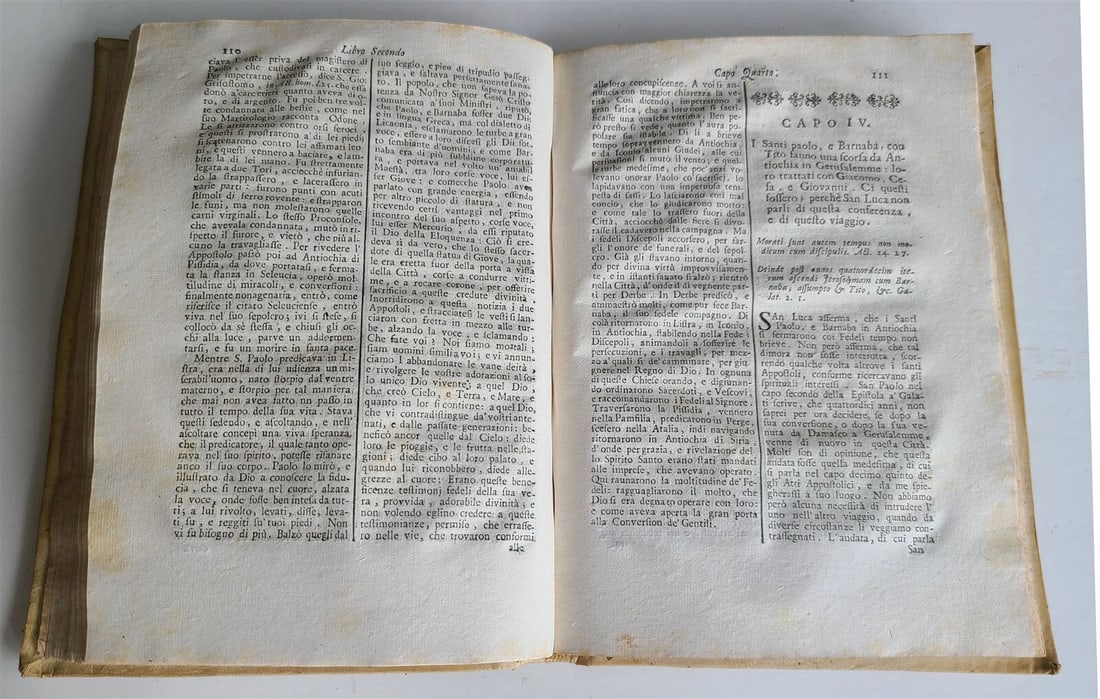 110
Libro Secondo
ciava l'esser priva del magistero di
Paolo, che custodivasi in carcere.
Per impetrarne l'accesso, dice S. Gio:
Grisostomo, hom. donò a'carcerieri quanto aveva di o-
ro, e di argento. Fu poi ben tre vol-
te condannata alle bestie, come nel
suo Martirologio racconta Odone.
Le si attizzarono contro orsi feroci,
e questi si prostrarono a' di lei piedi:
si scatenarono contro lei affamati leo-
ni, e questi vennero a baciare, e lam-
bire la di lei mano. Fu strettamente
legata a due Tori, acciocchè infurian-
do la strappassero, e lacerassero in
varie parti: furono punti con acuti
stimoli di ferro rovente: e strapparon
le funi, ma non molestarono quelle
carni virginali. Lo stesso Proconsole,
che avevala condannata, mutò in ri-
spetto il furore, e vietò, che più al-
cuno la travagliasse. Per rivedere l'
Appostolo passò poi ad Antiochia di
Pissidia, da dove portatasi, e ferma-
ta la stanza in Seleucia, operò mol-
titudine di miracoli, e conversioni:
finalmente nonagenaria, entrò, come
riferisce il citato Seleuciense, entrò
viva nel suo sepolcro; ivi si stese, si
collocò da sè stessa, e chiusi gli oc-
chi alla luce, parve un addormen-
tarsi, e fu un morire in santa pace.
Mentre S. Paolo predicava in Li-
stra, era nella di lui udienza un mi-
serabil'uomo, nato storpio dal ventre
materno, e storpio per tal maniera;
che mai non avea fatto un passo in
tutto il tempo della sua vita. Stava
questi sedendo, e ascoltando, e nell'
ascoltare concepì una viva speranza,
che il predicatore, il quale tanto ope-
rava nel suo spirito, potesse risanare
anco il suo corpo. Paolo lo mirò, e
illustrato da Dio a conoscere la fidu-
cia, che si teneva nel cuore, alzata
la voce, onde fosse ben intesa da tut-
ti; a lui rivolto, levati, disse, leva-
ti su, e reggiti su'tuoi piedi. Non
vi fu bisogno di più. Balzò quegli dal
suo seggio, e pien di tripudio passeg-
giava, e saltava perfettamente sana-
to. Il popolo, che non sapeva la po-
tenza da Nostro Signor Gesù Cristo
comunicata a' suoi Ministri, riputò,
che Paolo, e Barnaba fosser due Dii;
e in lingua Greca, ma col dialetto di
Licaonia, esclamarono le turbe a gran
voce, essere a loro discesi gli Dii sot-
to sembiante d'uomini; e come Bar-
naba era di più subblime corporatu-
ra, e portava nel volto un'amabil
Maestà, tra loro corse voce, lui es-
ser Giove; e comecchè Paolo aven
parlato con grande energia, essendo
per altro piccolo di statura, e non
ricevendo certi vantaggi nel primo
incontro del suo aspetto, corse voce,
lui esser Mercurio, da essi riputato
Dio della Eloquenza: Ciò si cre-
deva sì da vero, che lo stesso sacer-
dote di quella statua di Giove, la qua-
le era eretta fuor della porta a vista
della Città, corse a condurre vitti-
me, e a recare corone, per offerire
sacrificio a queste credute divinità.
Inorridirono a questa notizia i due
Appostoli, e stracciatesi le vesti si lan-
ciaron con fretta in mezzo alle tur-
be, alzando la voce, e sclamando:
Che fate voi? Noi siamo mortali;
siam uomini simili a voi; e vi annun-
ciamo l'abbandonare le vane deità,
e rivolgere le vostre adorazioni al so-
lo unico Dio vivente; a quel Dio,
che creò Cielo, e Terra, e Mare, e
quanto in lor si contiene: a quel Dio,
che vi contraddistingue da'voltri ante-
nati, e dalle passate generazioni: be-
neficò ancor quelle dal Cielo: diede
loro le piogge, e le frutta nelle sta-
gioni; diede cibo al loro palato, e
quando lui riconobbero, diede alle-
grezze al cuore: Erano queste bene-
ficenze testimonj fedeli della sua ve-
ra, provvida, adorabile divinità; e
non volendo eglino credere a queste
testimonianze, permise, che errasse-
ro nelle vie, che trovaron conformi
alle
Capo Quarto.
111
alle loro concupiscenze. A voi si an-
nuncia con maggior chiarezza la ve-
rità. Così dicendo, impetrarono a
gran fatica, che a loro non si sacri-
ficasse una qualche vittima. Ben pe-
rò presto si vede, quanto l'aura po-
polare sia istabile. Di lì a brieve
tempo sopravvennero da Antiochia,
e da Iconio alcuni Giudei, alle cui
persuasioni si mutò il vento; e quel-
le turbe medesime, che poc'anzi vo-
levano onorar Paolo co' sacrificj, lo
lapidavano con una impetuosa tem-
pesta di sassi. Lo lasciarono così mal
concio, che lo giudicarono morto:
e come tale lo trassero fuori della
Città, acciocchè dalle fiere si divo-
rasse il cadavero nella campagna. Ma
i fedeli Discepoli accorsero, per far-
gli l'onore de'funerali, e del sepol-
cro. Già gli stavano intorno, quan-
do per divina virtù improvvisamen-
te, e in istanti sanato s'alzò, rientrò
nella Città, d'onde il dì vegnente par-
tì per Derbe. In Derbe predicò, e
ammaestrò molti, come pur fece Bar-
naba, il suo fedele compagno. Di
colà ritornarono in Listra, in Iconio,
in Antiochia, stabilendo nella Fede i
Discepoli, animandoli a sofferire le
persecuzioni, e i travagli, per mez-
zo a' quali si de' camminare, per giu-
gnere nel Regno di Dio. In ognuna
di queste Chiese orando, e digiunan-
do ordinarono Sacerdoti, e Vescovi,
e raccomandarono i Fedeli al Signore.
Traversarono la Pissidia, vennero
nella Pamfilia, predicarono in Perge,
scesero nella Atalia, indi navigando
ritornarono in Antiochia di Siria,
d'onde per grazia, e rivelazione del-
lo Spirito Santo erano stati mandati
alle imprese, che avevano operato.
Qui raunarono la moltitudine de' Fe-
deli: ragguagliarono il molto, che
Dio si era degnato operare con loro:
e come aveva aperta la gran porta
alla Conversion de' Gentili.
CAPO IV.
I Santi paolo, e Barnaba, con
Tito fanno una scorsa da An-
tiochia in Gerusalemme: lo-
ro trattati con Giacomo, Ce-
fa, e Giovanni. Ci questi
fossero; perchè San Luca non
parli di questa conferenza,
e di questo viaggio.
Morati sunt autem tempus non mo-
dicum cum discipulis. Act. 14. 27.
Deinde post annos quatuordecim ite-
rum ascendi Jerosolymam cum Bar-
naba, assumpto & Tito, &c. Ga-
lat. 2. 1.
SAn Luca asserma, che i Santi
Paolo, e Barnaba in Antiochia
si fermarono coi Fedeli tempo non
brieve. Non però afferma, che tal
dimora non fosse interrotta, scor-
rendo qualche volta altrove i santi
Appostoli, conforme ricercavano gli
spirituali interessi. San Paolo nel
capo secondo della Epistola a' Gala-
ti scrive, che quattordici anni, non
saprei per ora decidere, se dopo la
sua conversione, o dopo la sua ve-
nuta da Damasco a Gerusalemme,
venne di nuovo in questa Città.
Molti son di opinione, che questa
andata fosse quella medesima, di cui
si parla nel capo decimo quinto de-
gli Atti Appostolici, e da me spie-
gherassi a suo luogo. Non abbiamo
però alcuna necessità di intrudere l'
uno nell'altro viaggio, quando da
diverse circostanze li veggiamo con-
trassegnati. L'andata, di cui parla
San